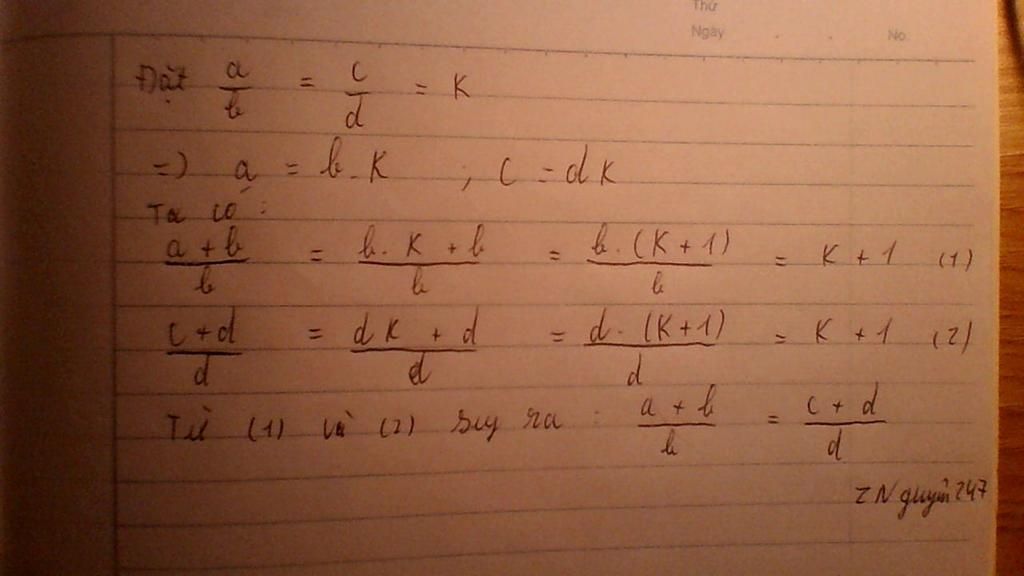 Thứ
Ngày No
Đặt a/b = c/d = K
=) a = b.K ; c = dK
Ta có :
(a + b)/b = (b.K + b)/b = (b.(K+1))/b = K + 1 (1)
(c + d)/d = (dK + d)/d = (d.(K+1))/d = K + 1 (2)
Từ (1) và (2) suy ra : (a + b)/b = (c + d)/d